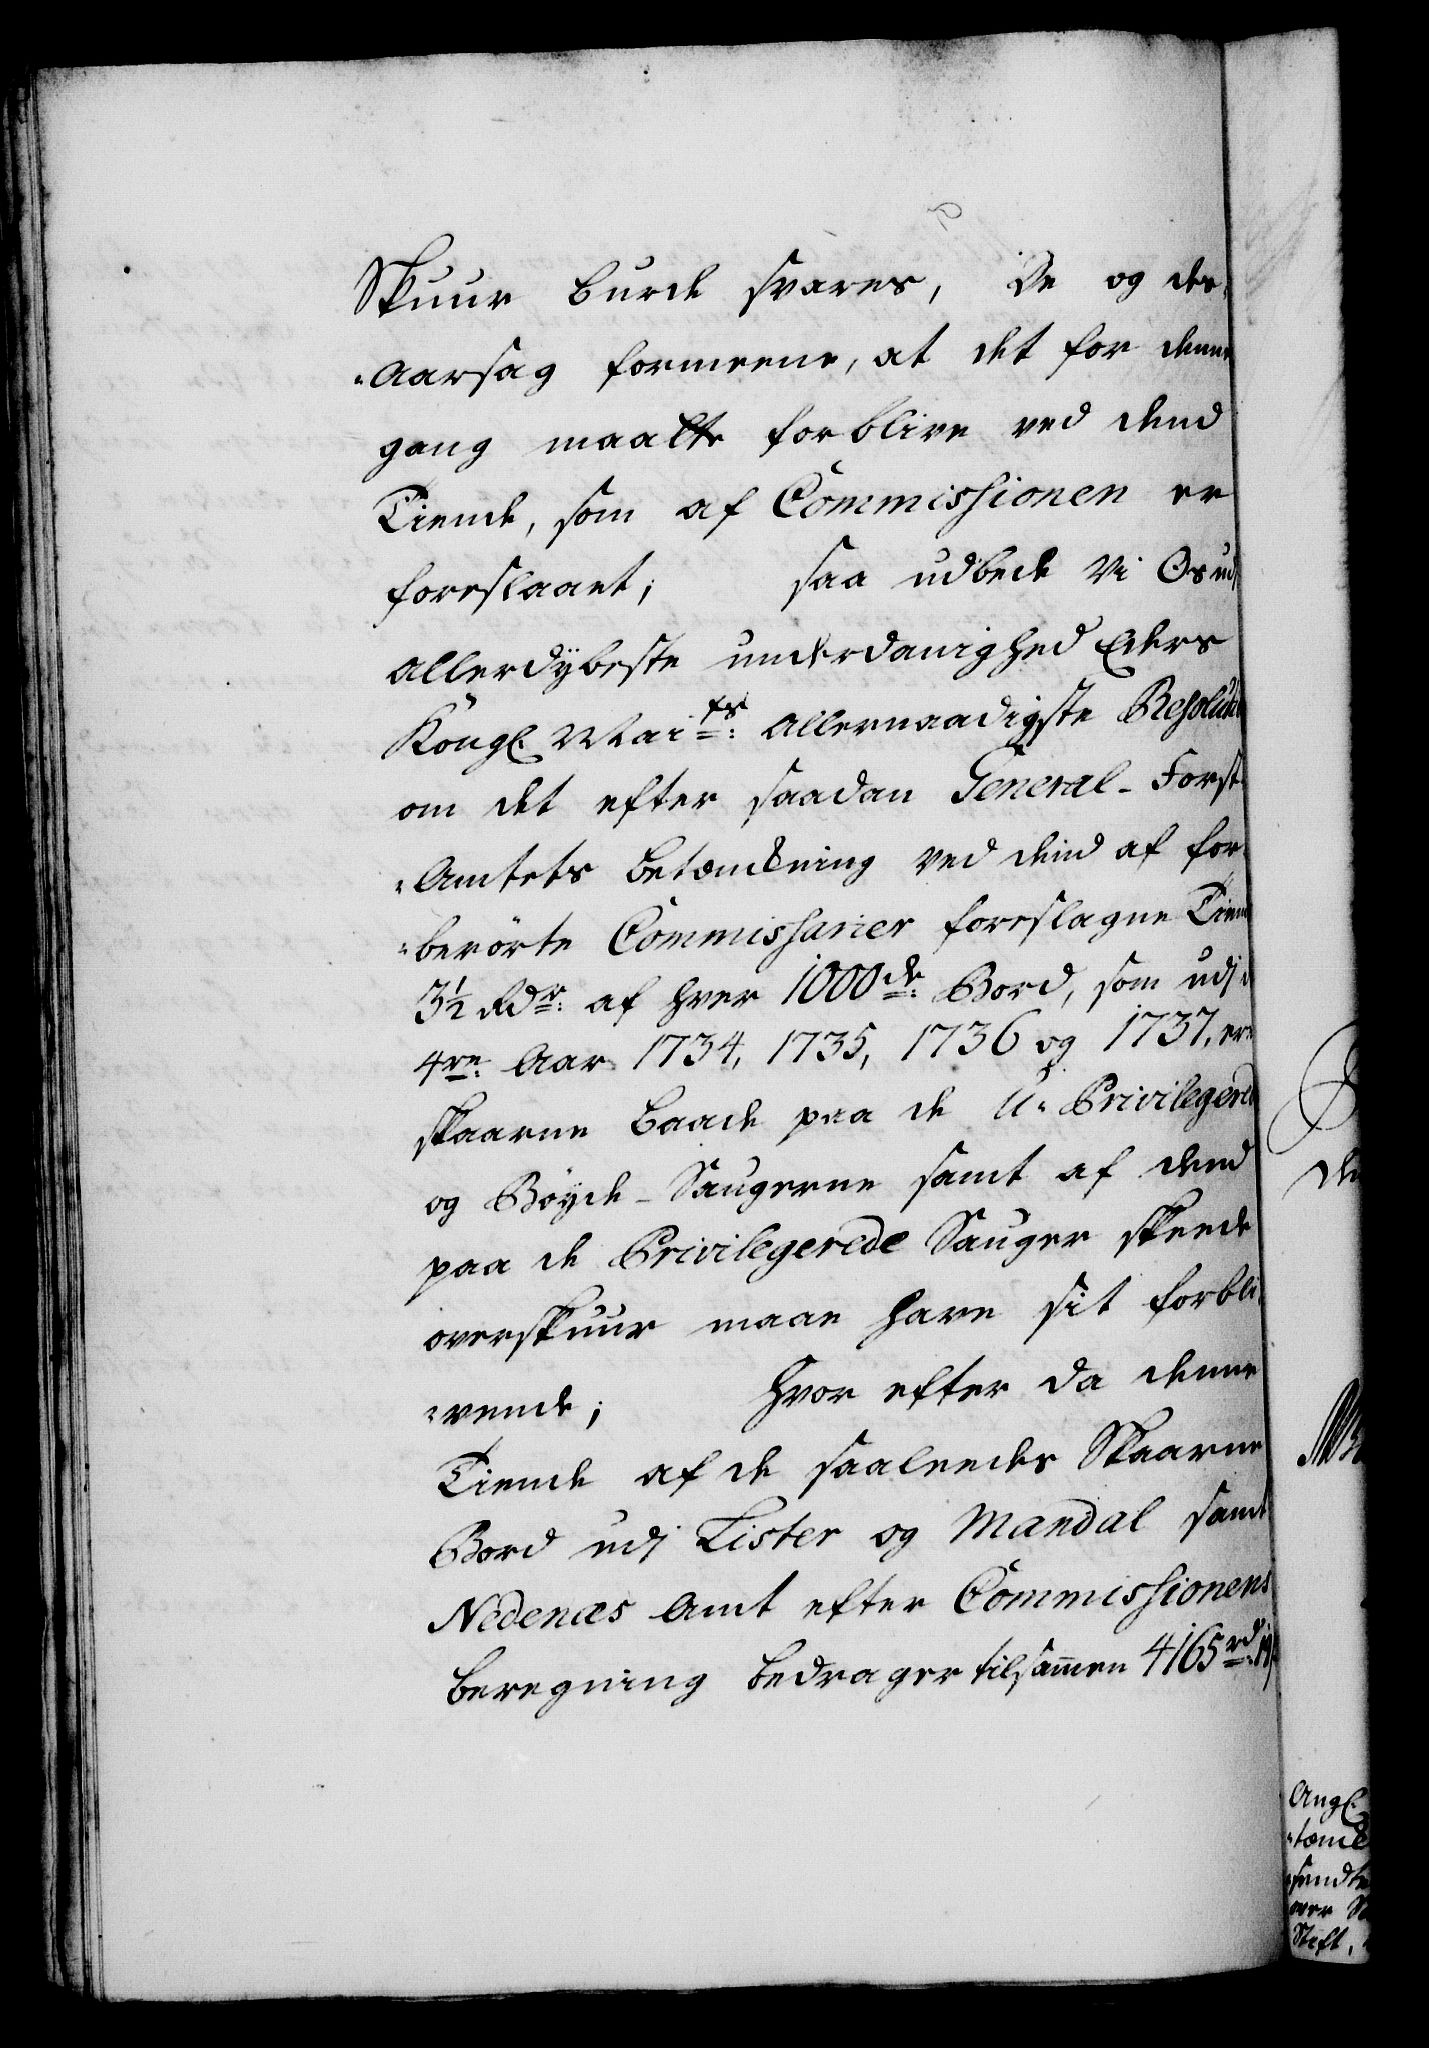 Skuur burde svares, De og der-
-Aarsag formeene, at det for denne
gang maatte forblive ved dend
Tiende, som af Commissionen er
foreslaaet; saa udbede Vi Os udj
allerdÿbeste underdanighed Eders
Kongl. Mai:ts: allernaadigste Resolution
om det efter saadan General-Forst-
-Amtets betænkning ved dend af for-
-berörte Commissarier foreslagne Tiende
3½ Rdr: af hver 1000de: Bord, som udj
4re: Aar 1734, 1735, 1736 og 1737, ere
skaarne baade paa de U-Privilegerede
og Böyde-Saugerne samt af dend
paa de Privilegerede Sauger skeede
overskuur maae have sit forbli-
-vende; hvor efter da denne
Tiende af de saaleedes Skaarne
Bord udj Lister og Mandal samt
Nedenæs Amt efter Commissionens
beregning bedrager tilsammen 4165rd: